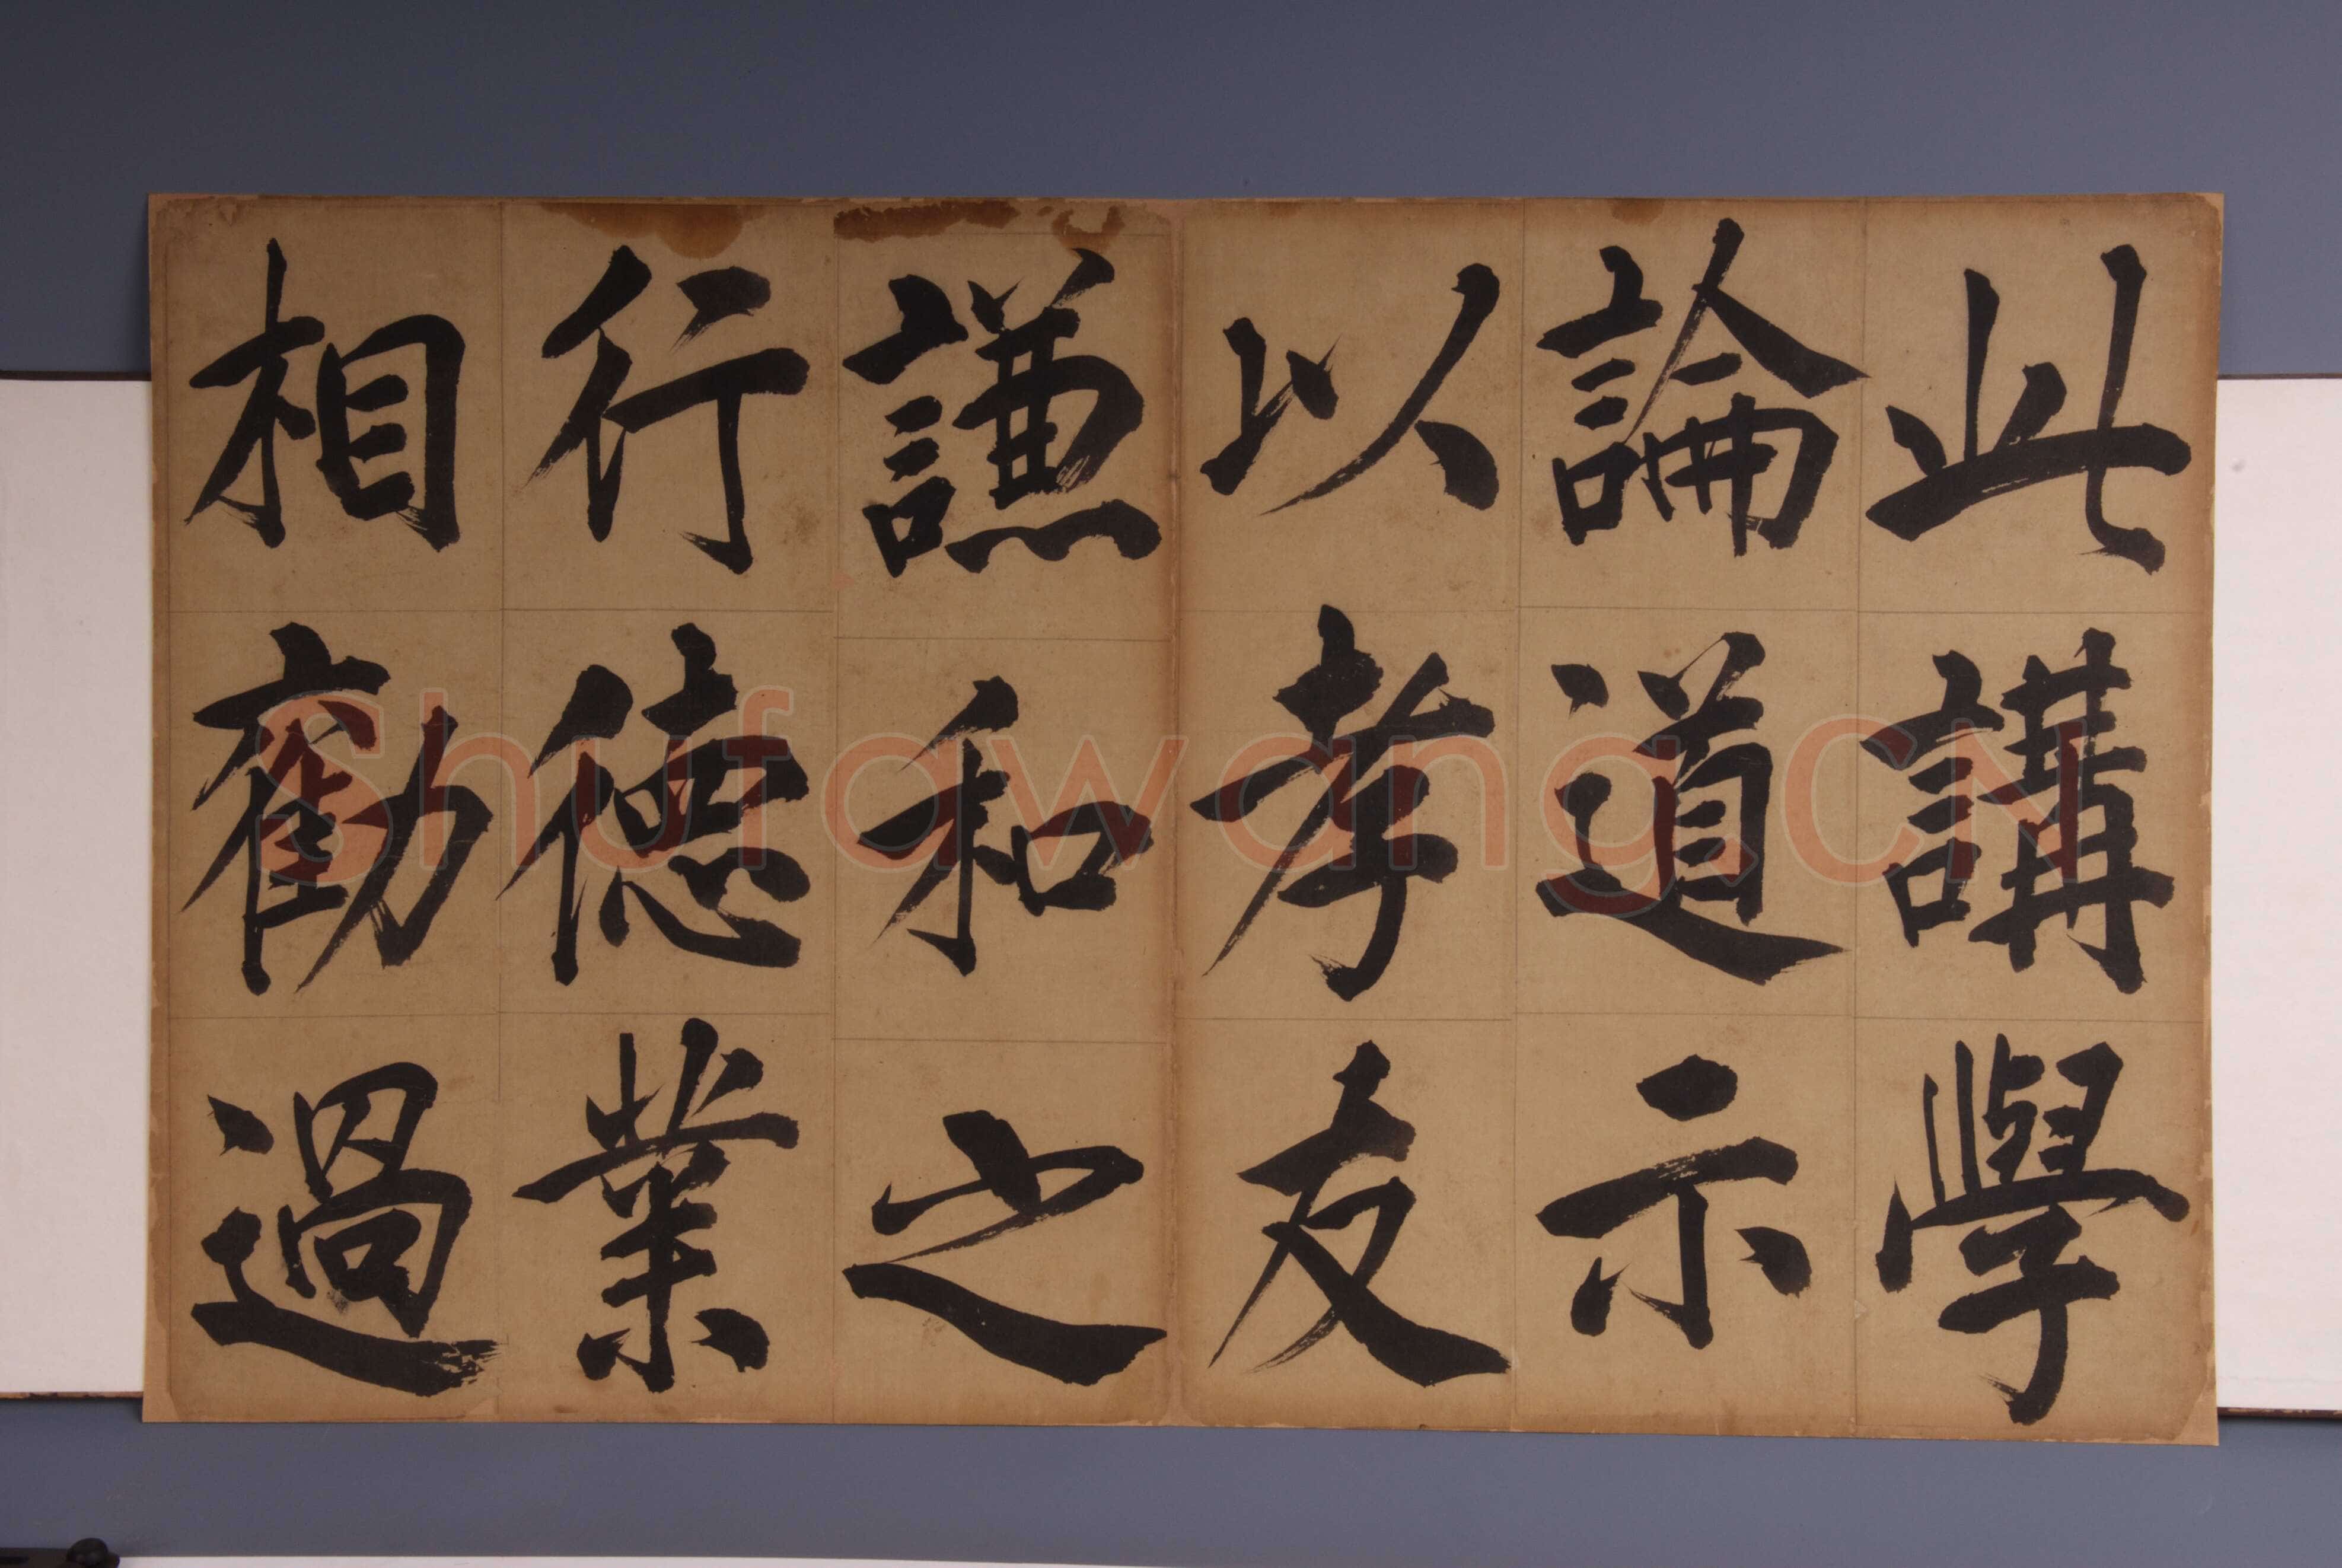 此講學
論道示
以孝友
謙和之
行德業
相勸過
Shufawang.CN